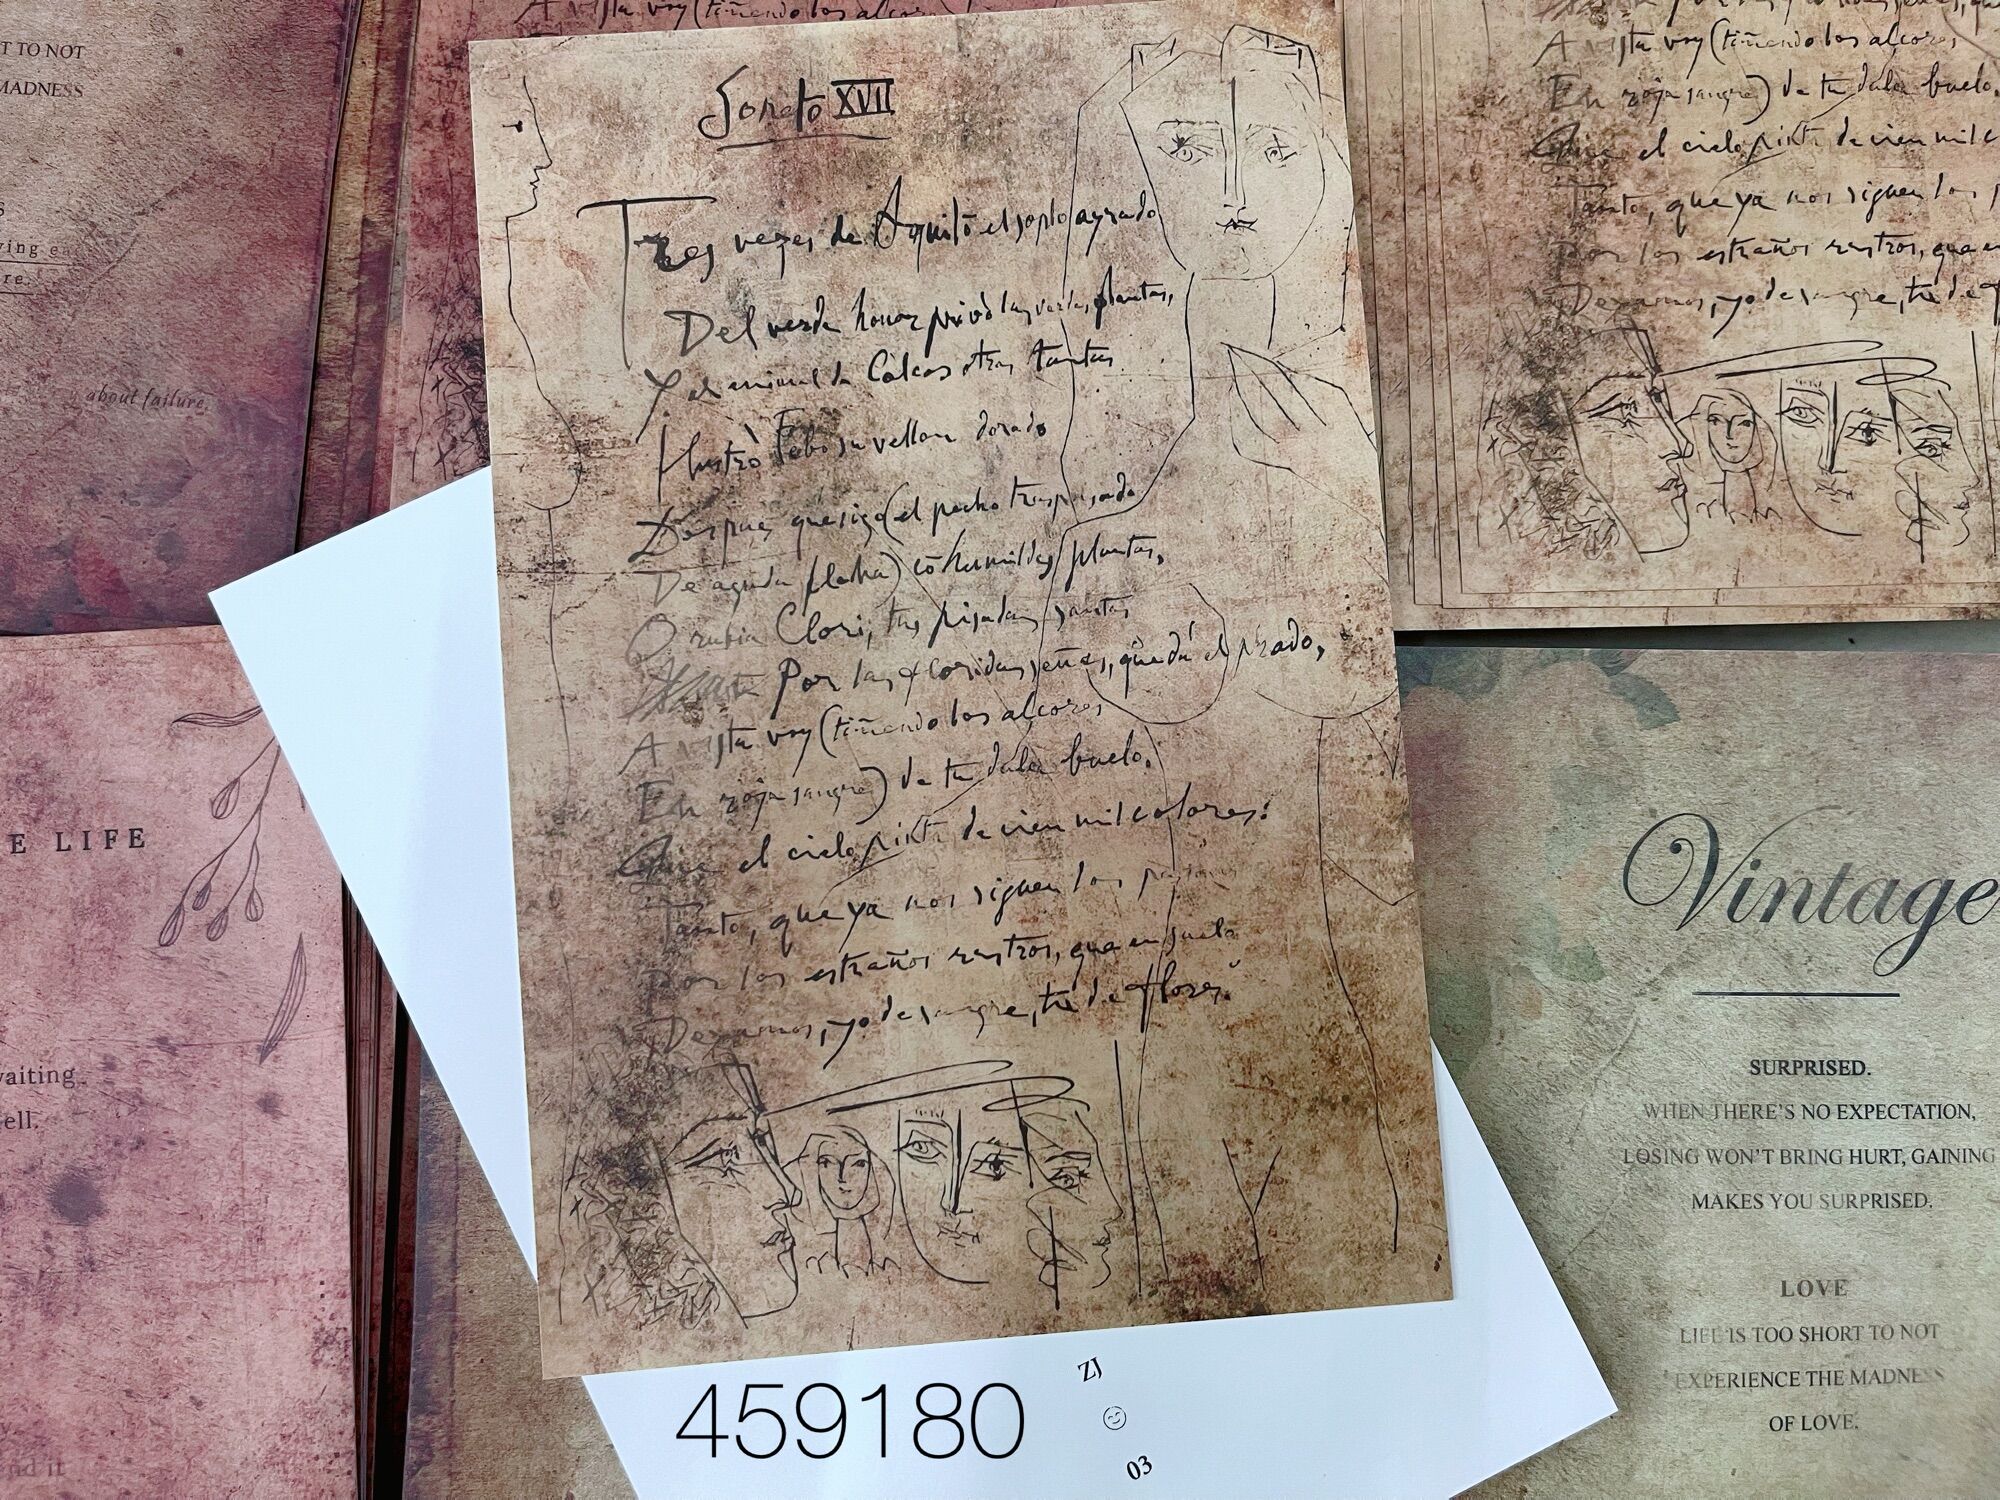 Soneto XVII
Tres vezes de Aquilō el soplo ayrado
Del verde honor privò las verdes plantas,
Y al animal de Colcos otras tantas
Ilustrò Febo su vellon dorado
Despues que sigo (el pecho traspasado
De aguda flecha) cō humildes plantas,
O rubia Clori, tus pisadas santas
Por las floridas señas, que dà el prado,
A vista voy (tiñendo los alcores
En roja sangre) de tu dulce buelo.
Que el cielo pinta de cien mil colores:
Tanto, que ya nos siguen los pastores
Por los estraños rastros, que en suelo
Dexamos, yo de sangre, tu de flores.
459180
ZJ
03
A vista voy (tiñendo los alcores
T TO NOT
MADNESS
ving ea
re.
about failure.
E LIFE
vaiting
ell.
nd it
A vista voy (tiñendo los alcores
En roja sangre) de tu dulce buelo.
Que el cielo pinta de cien mil c
Tanto, que ya nos siguen los p
Por los estraños rastros, que en
Dexamos, yo de sangre, tu de f
Vintage
SURPRISED.
WHEN THERE'S NO EXPECTATION,
LOSING WON'T BRING HURT, GAINING
MAKES YOU SURPRISED.
LOVE
LIFE IS TOO SHORT TO NOT
EXPERIENCE THE MADNESS
OF LOVE.